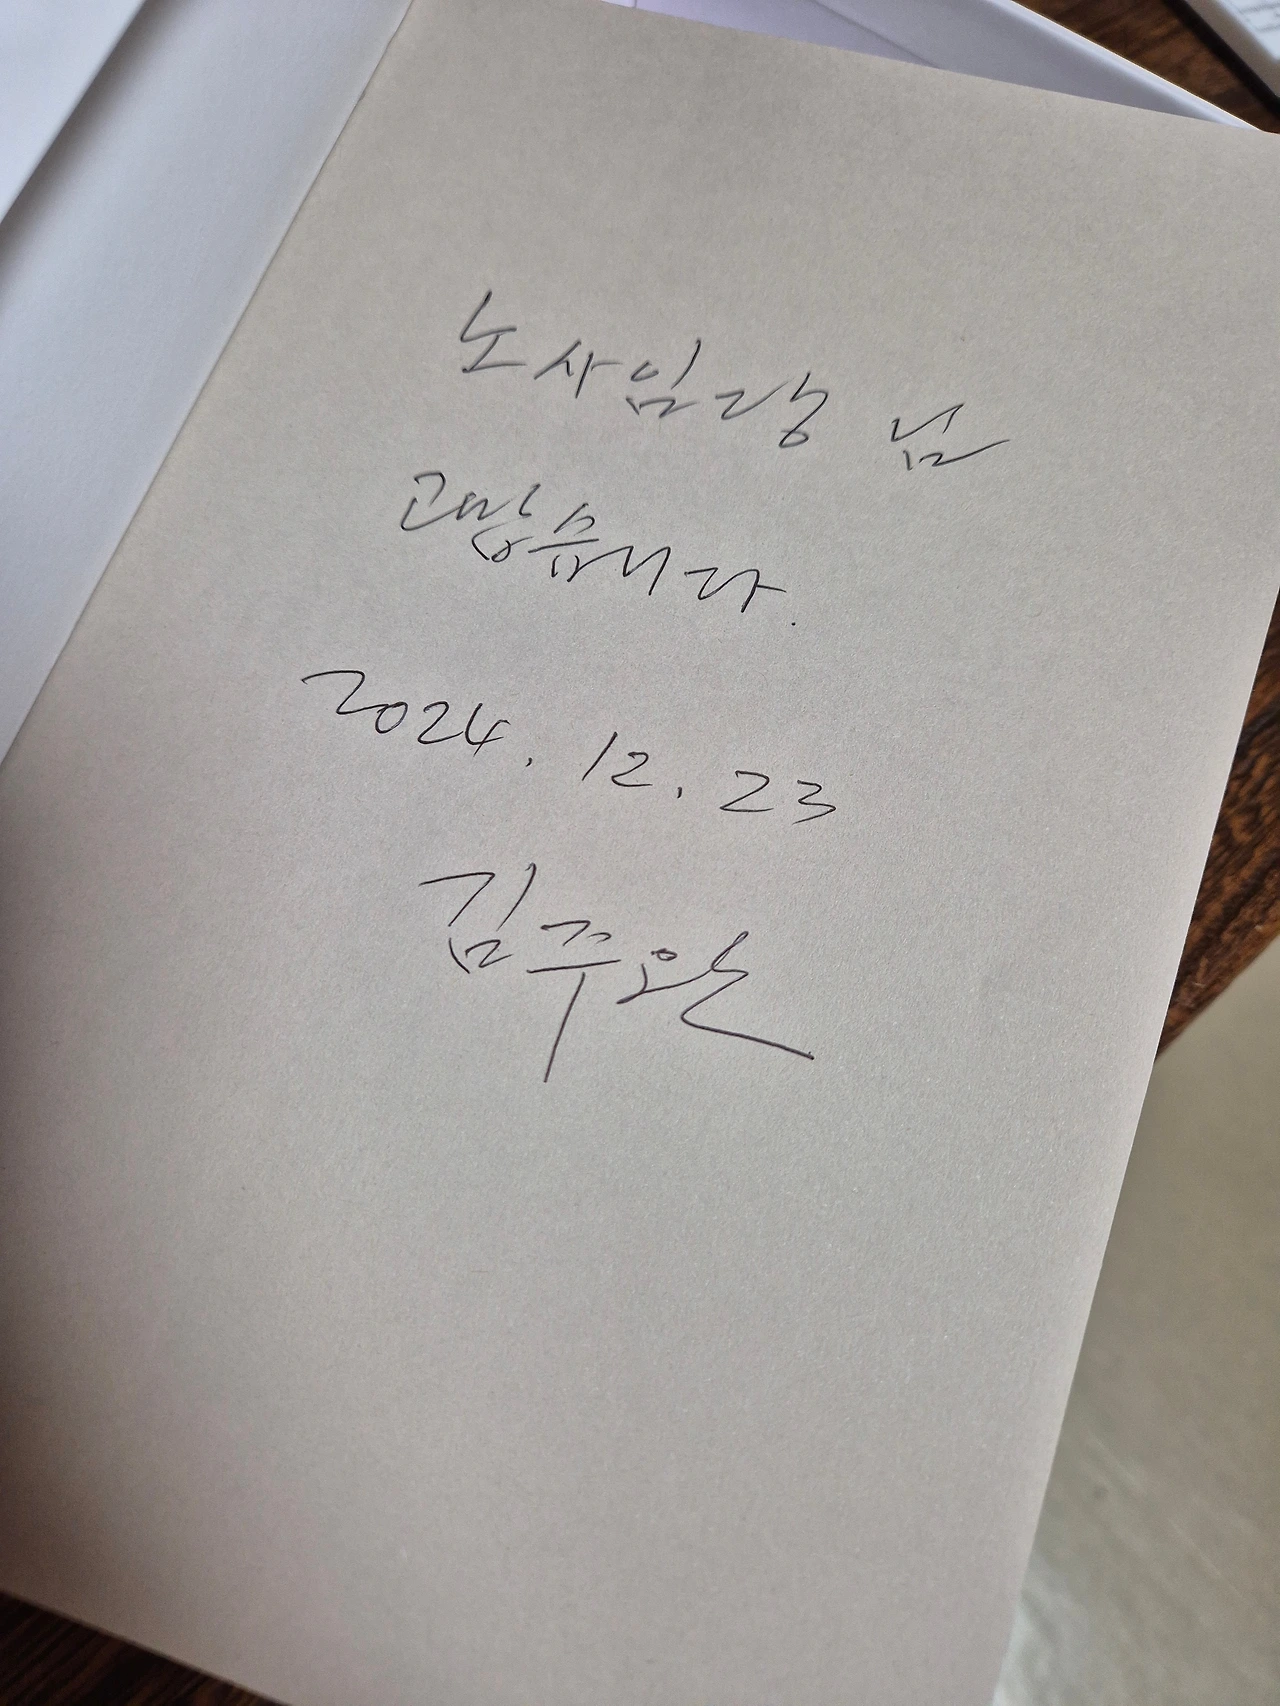 노사임당 님
고맙습니다.
2024. 12. 23
김주완